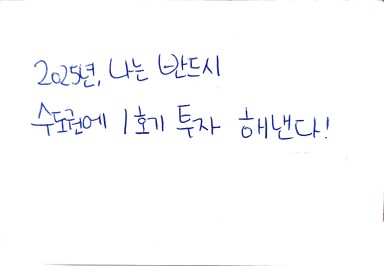 2025년, 나는 반드시
수도권에 1호기 투자 해낸다!